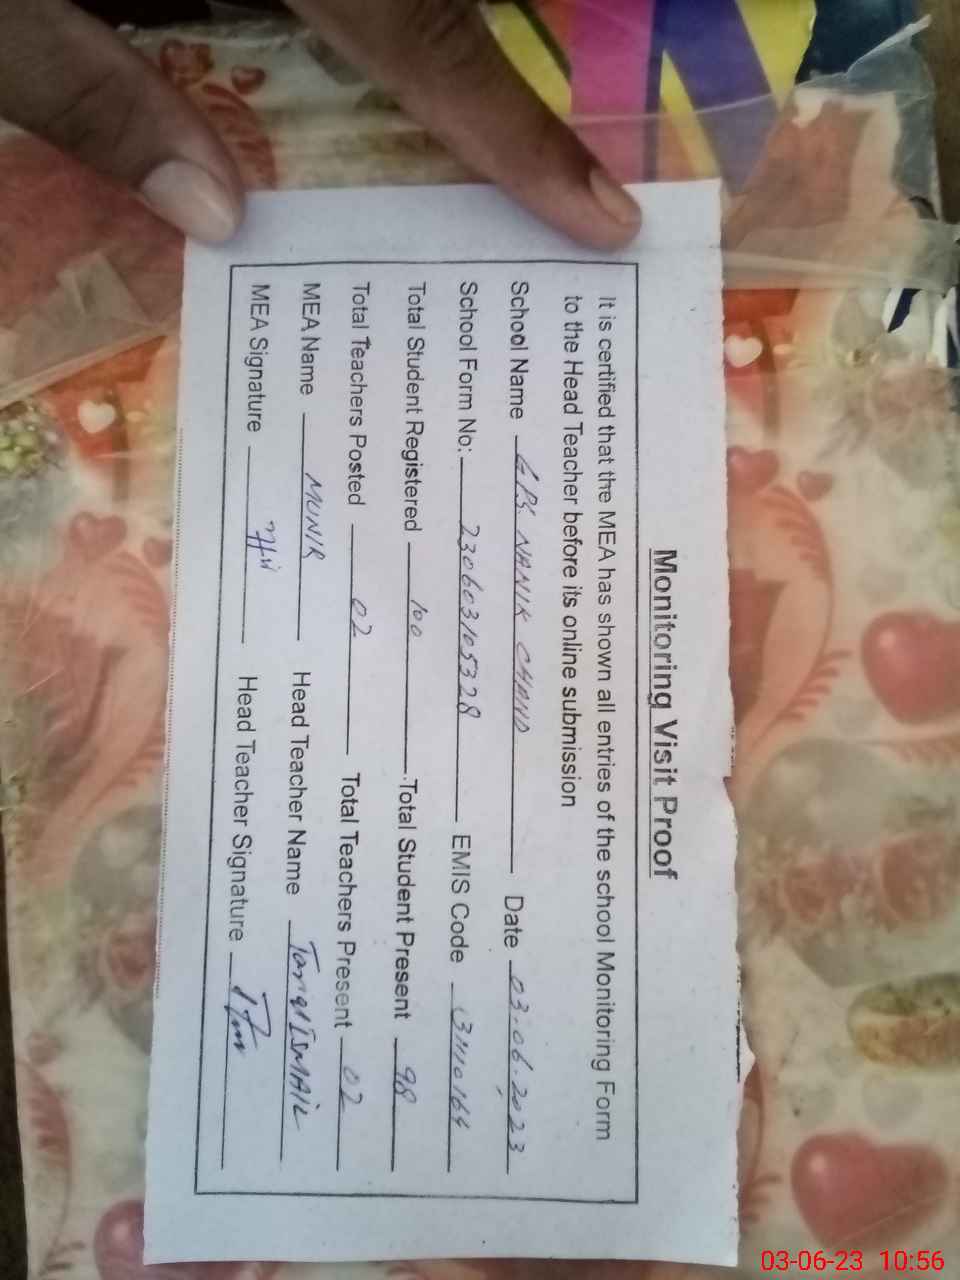 Monitoring Visit Proof
It is certified that the MEA has shown all entries of the school Monitoring Form
to the Head Teacher before its online submission
School Name GPS. NANIK CHAND Date 03.06.2023
School Form No: 230603105328 EMIS Code 31110164
Total Student Registered 100 Total Student Present 98
Total Teachers Posted 02 Total Teachers Present 02
MEA Name MUNIR Head Teacher Name Tariq ISMAIL
MEA Signature Head Teacher Signature
03-06-23 10:56